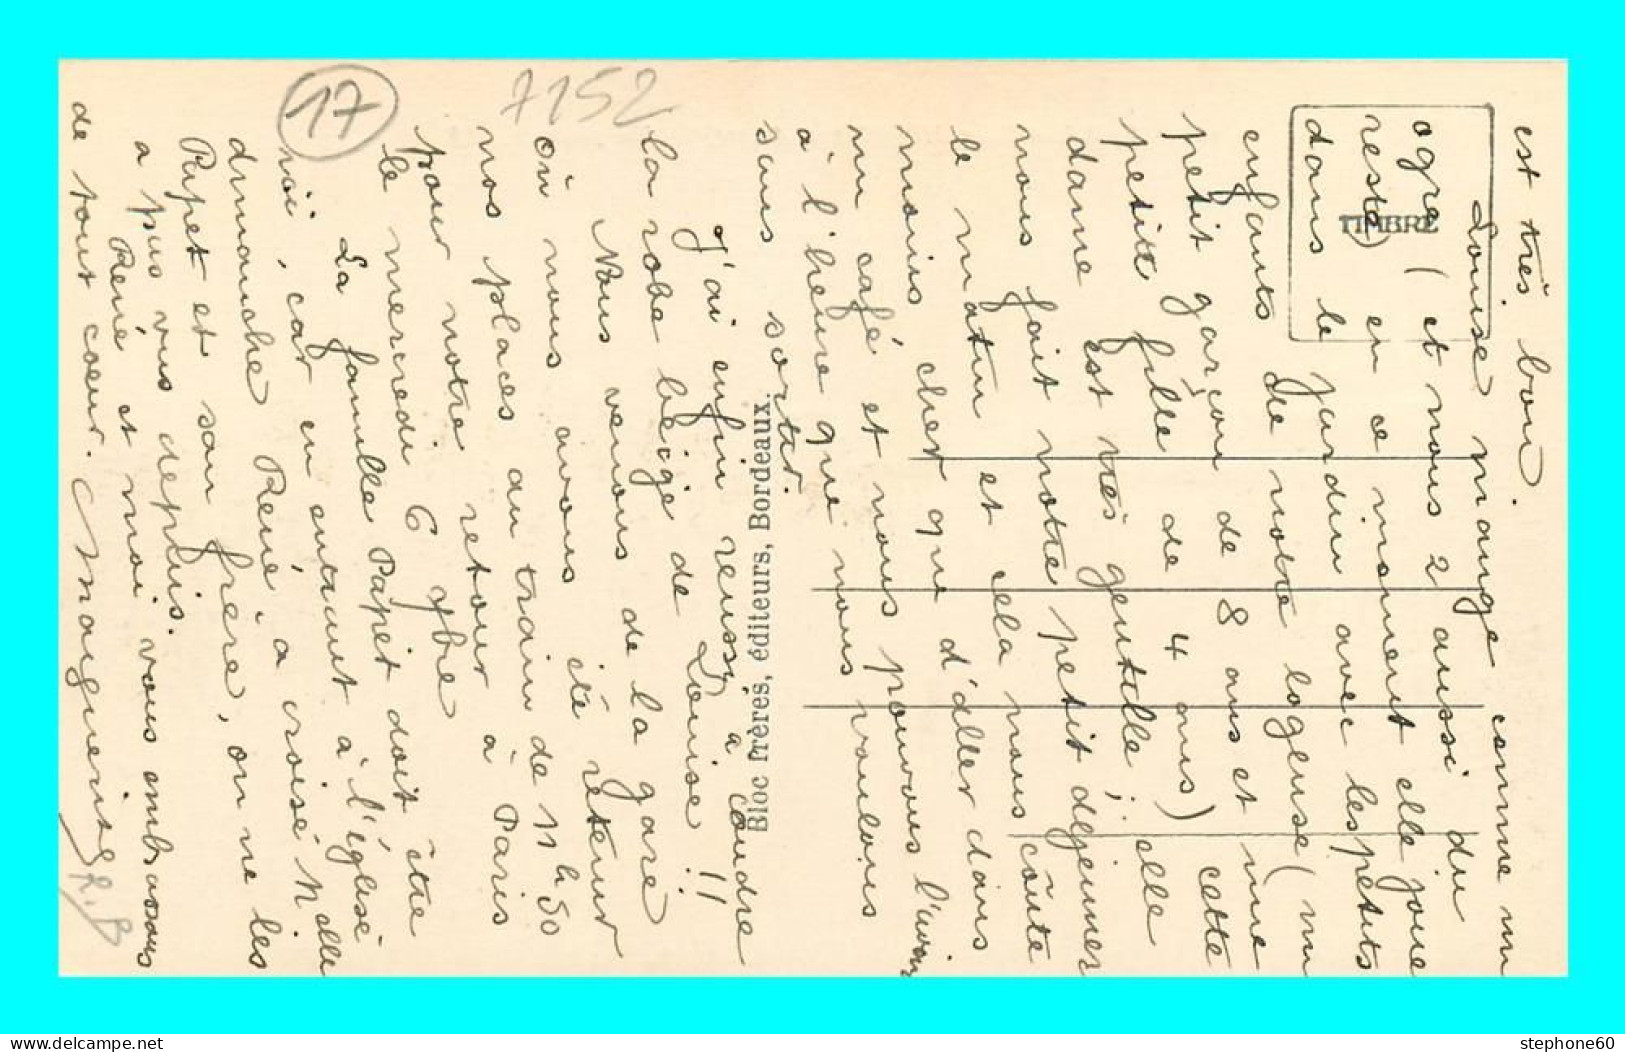 est très bon.
Louise mange comme un
ogre (et nous 2 aussi du
reste) en ce moment elle joue
dans le jardin avec les petits
enfants de notre logeuse (un
petit garçon de 8 ans et une
petite fille de 4 ans) cette
dame est très gentille; elle
nous fait notre petit déjeuner
le matin et cela nous coûte
moins cher que d'aller dans
un café et nous pouvons l'avoir
à l'heure que nous voulons
sans sortir.
J'ai enfin réussi à coudre
la robe beige de Louise !!
Nous venons de la gare
où nous avons été retenir
nos places au train de 11h50
pour notre retour à Paris
le mercredi 6 7bre
La famille Papet doit être
ici, car en entrant à l'église
dimanche René a croisé Melle
Papet et son frère, on ne les
a pas vus depuis.
René et moi vous embrassons
de tout coeur. Marguerite
R.B
17
7152
TIMBRE
Bloc frères, éditeurs, Bordeaux.
stephone60